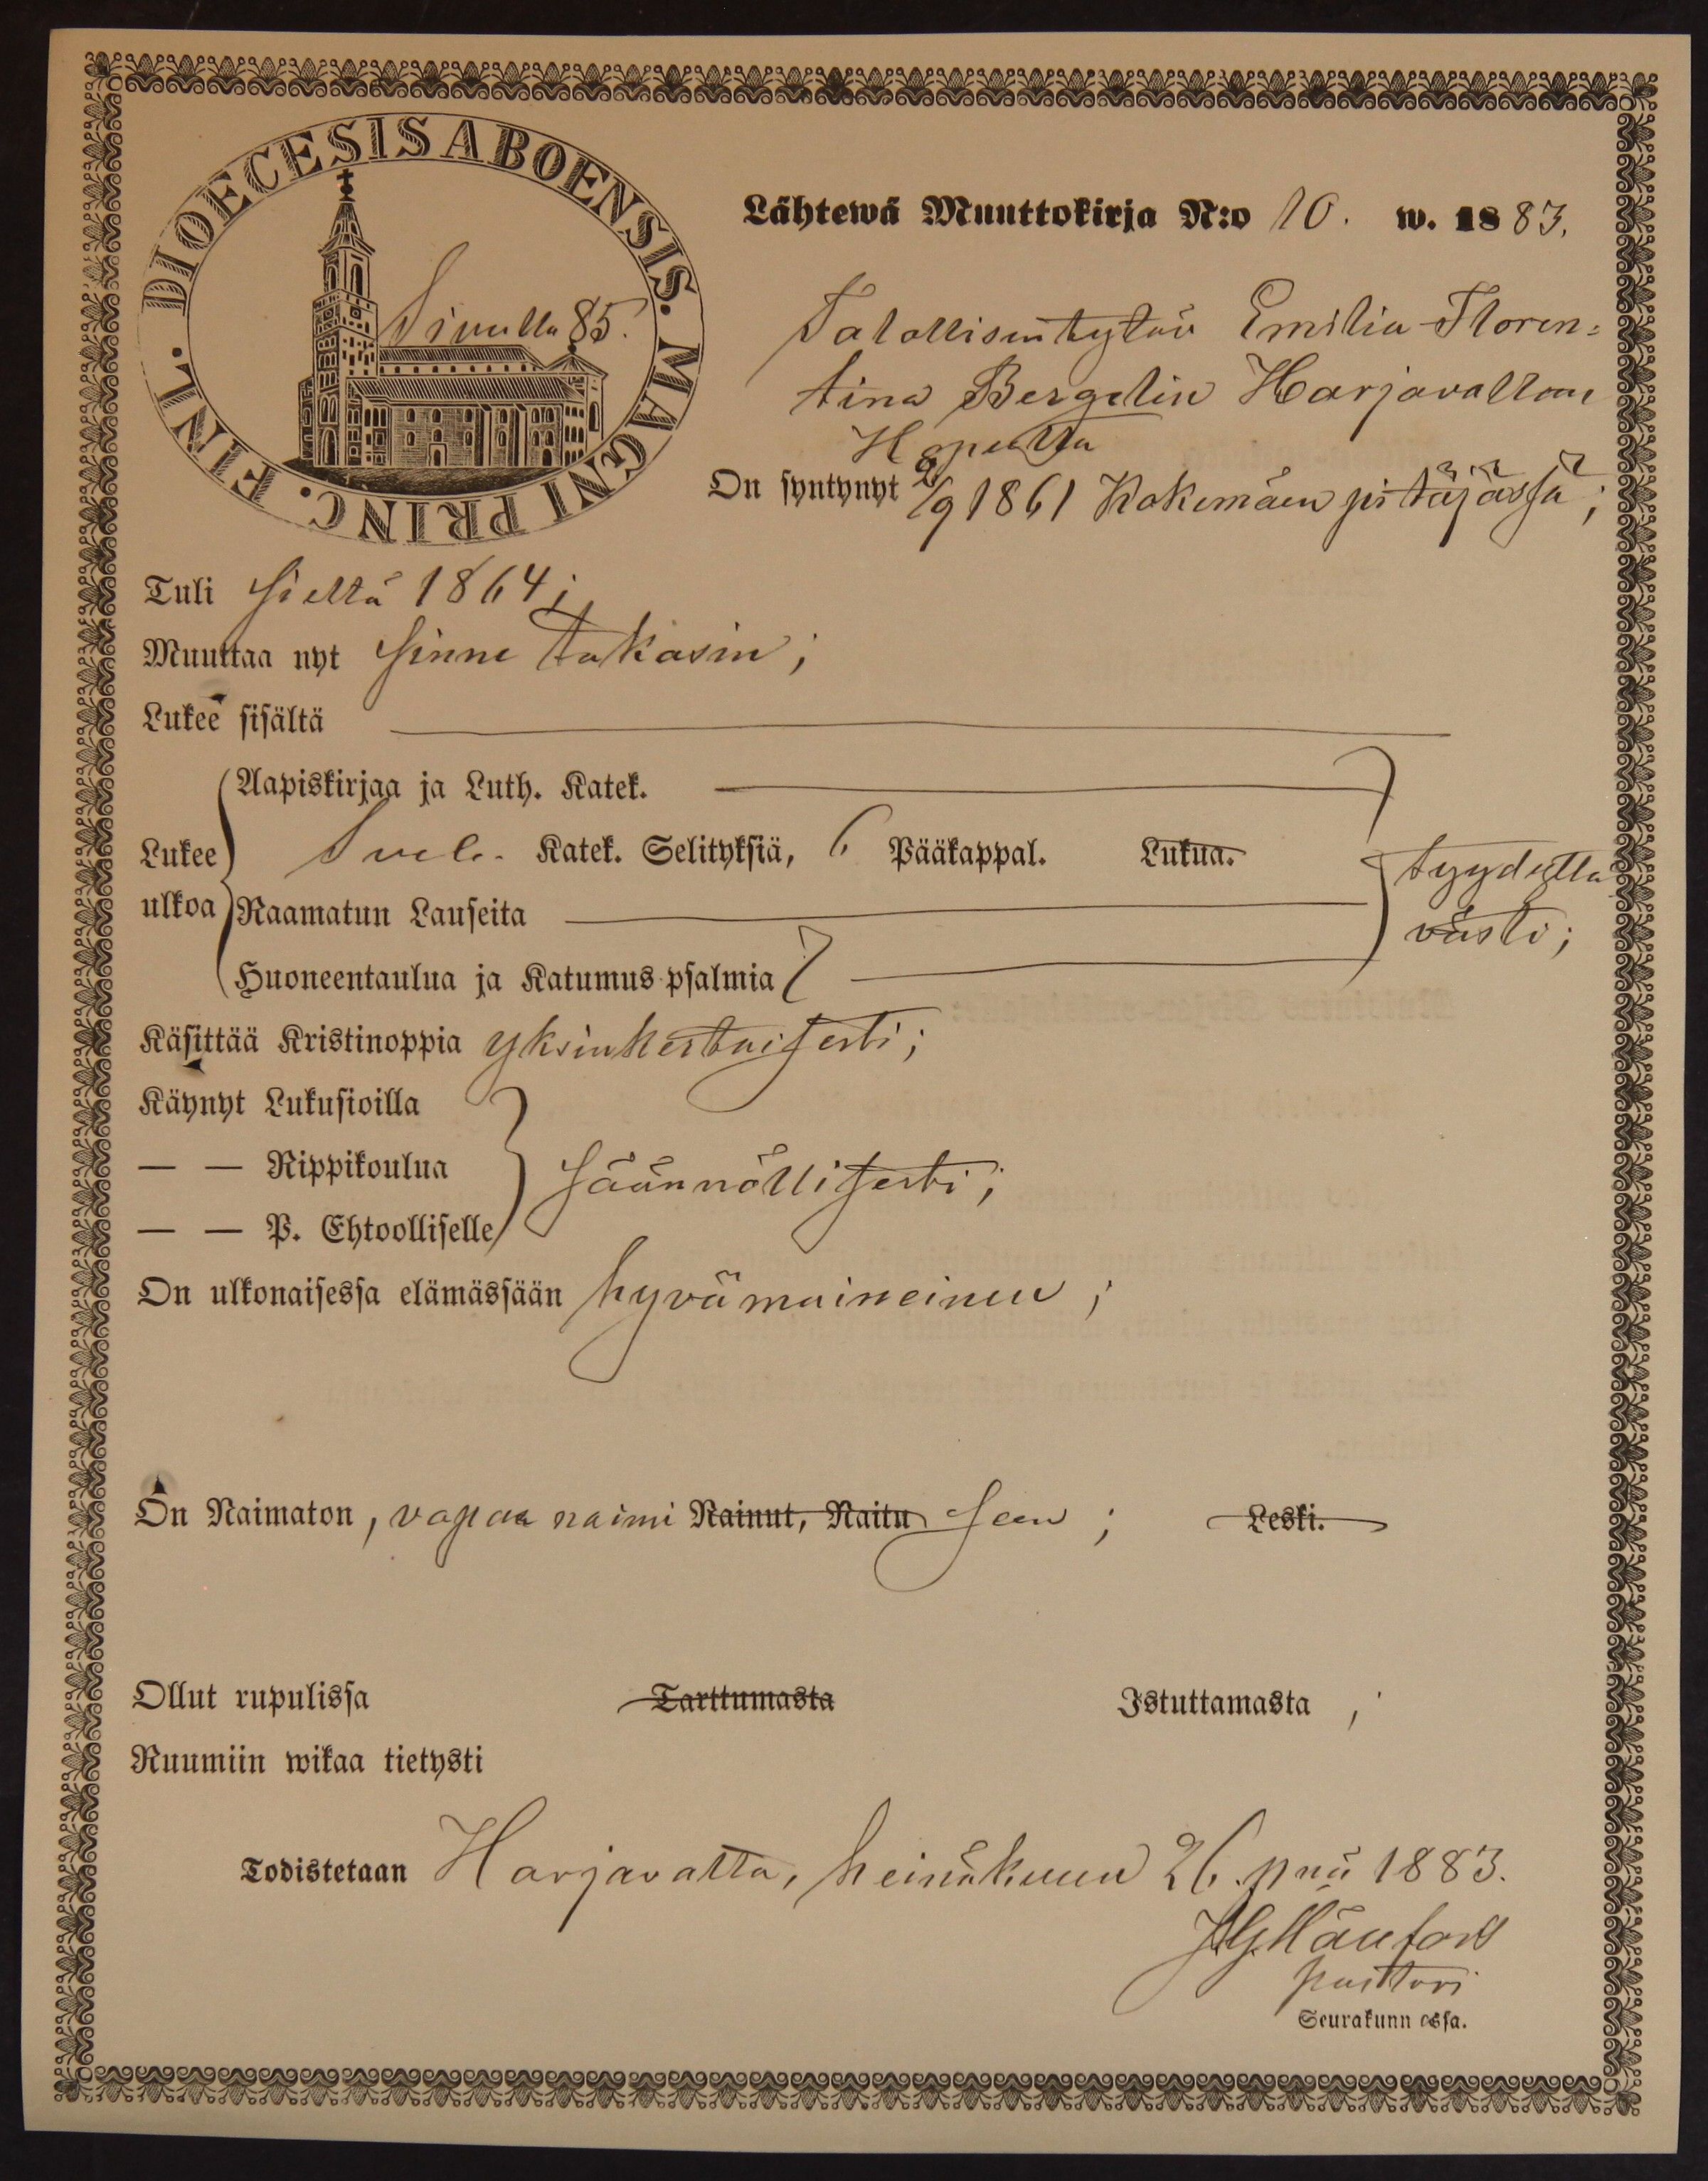 DIOECESIS ABOENSIS. MAGNI PRINC. FINL.
Sivulla 85.
Lähtewä Muuttokirja N:o 10. w. 1883.
Talollisentytär Emilia Floren=
tina Bergelin Harjavallan
On syntynyt 8/9 1861 Kokemäen pitäjässä;
Tuli sieltä 1864;
Muuttaa nyt sinne takasin;
Lukee sisältä
Aapiskirjaa ja Luth. Katek.
Lukee Svel. Katek. Selityksiä, 6 Pääkappal. Lukua. tyydyttä
ulkoa Raamatun Lauseita västi;
Huoneentaulua ja Katumus psalmia 7
Käsittää Kristinoppia yksinkertaisesti;
Käynyt Lukusioilla
— — Rippikoulua säännöllisesti;
— — P. Ehtoolliselle
On ulkonaisessa elämässään hyvämaineinen;
On Naimaton, vapaa naimi Nainut, Naitu seen; Leski.
Ollut rupulissa Tarttumasta Istuttamasta;
Ruumiin wikaa tietysti
Todistetaan Harjavalta, heinäkuun 26. pnä 1883.
pastori
Seurakunn assa.